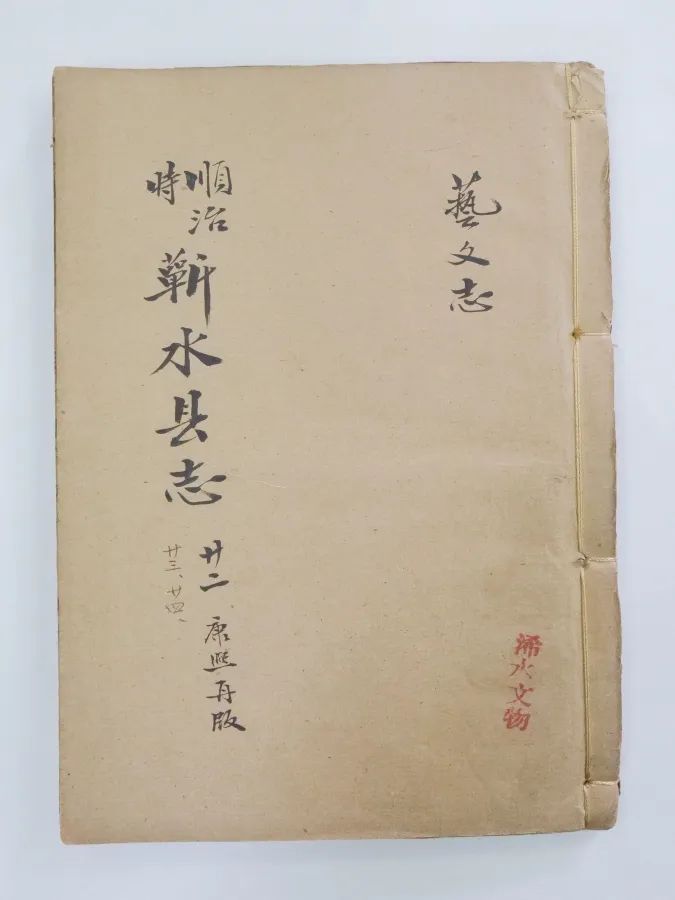 藝文志
浠水文物
順治
時
蘄水县志
廿二
康熙再版
廿三、廿四、